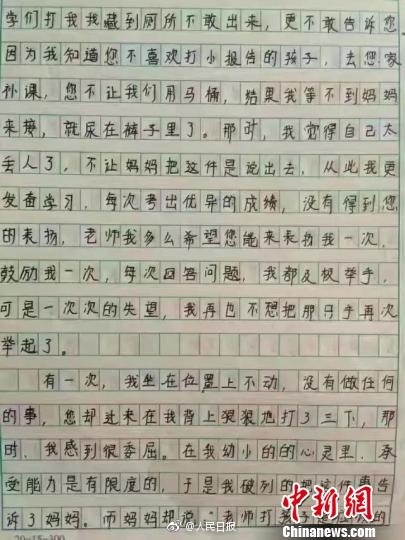 学们打我我藏到厕所不敢出来，更不敢告诉您.
因为我知道您不喜欢打小报告的孩子，去您家
补课，您不让我们用马桶，结果我等不到妈妈
来接，就尿在裤子里了。那时，我觉得自己太
丢人了，不让妈妈把这件是说出去，从此我更
发奋学习，每次考出优异的成绩，没有得到您
的表扬，老师我多么希望您能来表扬我一次，
鼓励我一次，每次回答问题，我都及极举手，
可是一次次的失望，我再也不想把那只手再次
举起了。
有一次，我坐在位置上不动，没有做任何
的事，您却进来在我背上狠狠地打了三下，那
时，我感到很委屈。在我幼小的的心灵里，承
受能力是有限度的，于是我破列的把这件事告
诉了妈妈。而妈妈却说：老师打孩子是应 的
中新网
www.chinanews.com
@人民日报
20×15=300